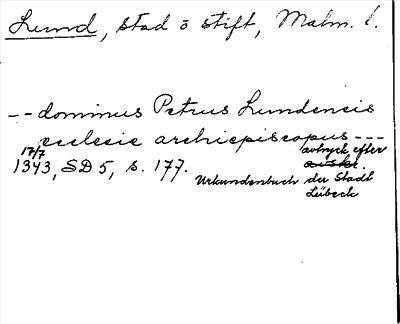 Lund, stad o stift, Malm. l.
-- dominus Petrus Lundensis
ecclesie archiepiscopus ---
17/7 avtryck efter
1343, SD 5, s. 177. avskr.
Urkundenbuch der Stadt
Lübeck